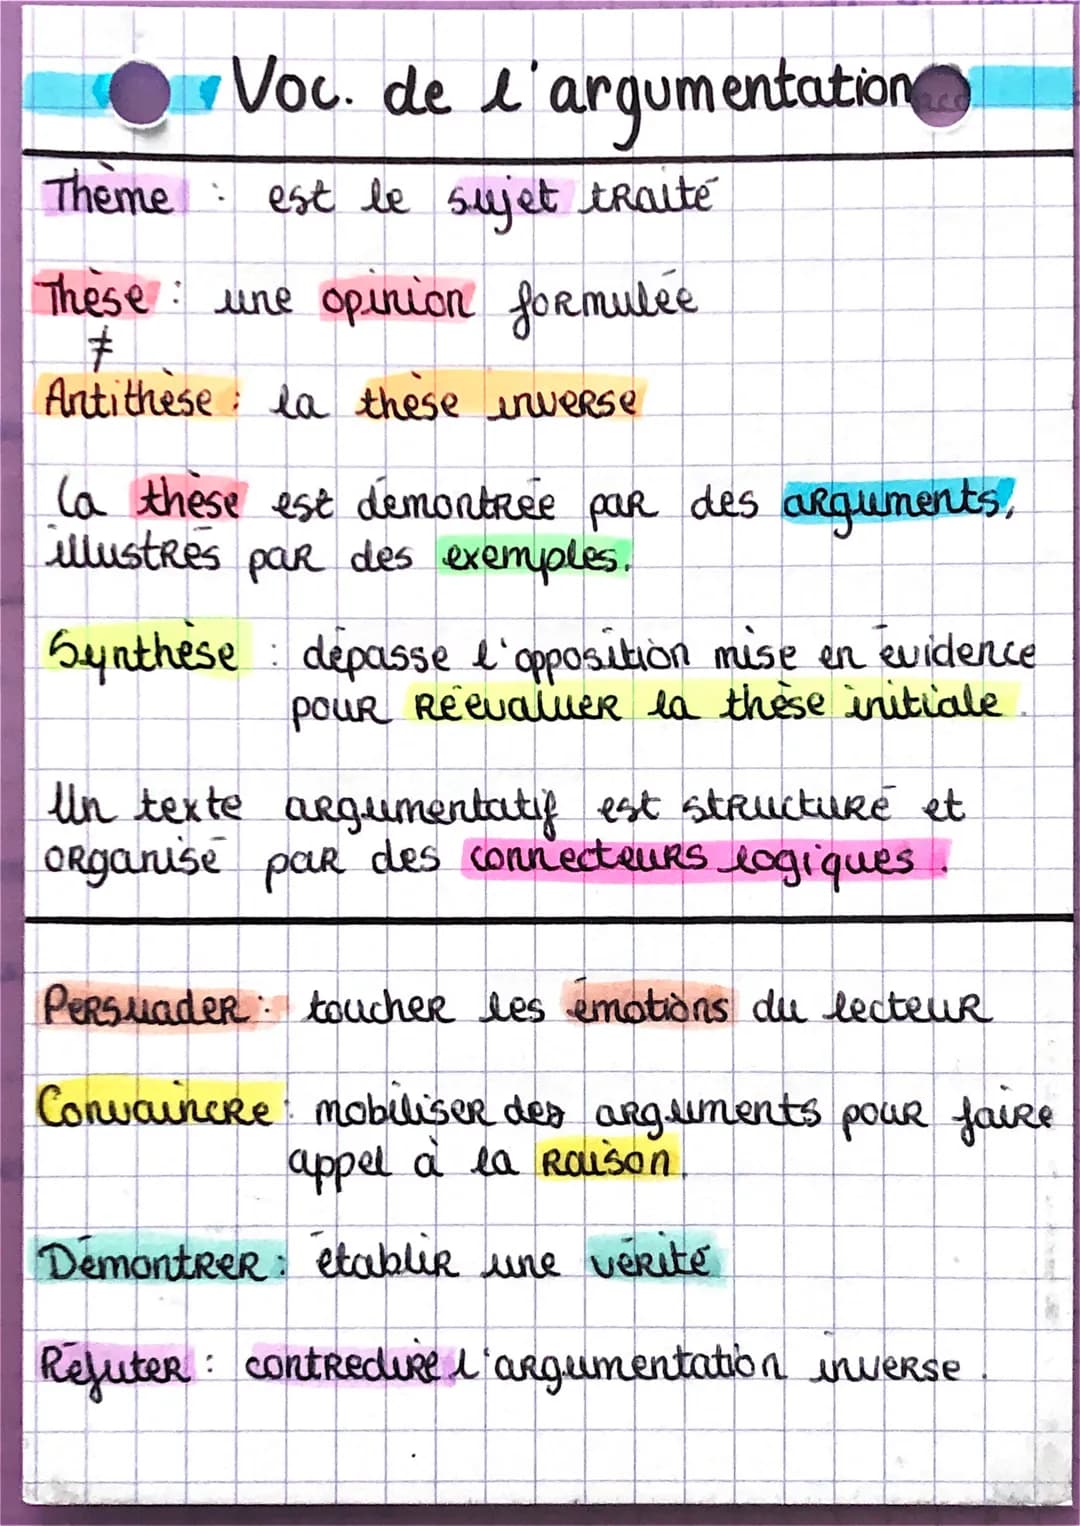 Voc. de l'argumentation
Thème : est le sujet traité
Thèse : une opinion formulée
≠
Antithèse : la thèse inverse
La thèse est démontrée par des arguments,
illustrés par des exemples.
Synthèse : dépasse l'opposition mise en évidence
pour réévaluer la thèse initiale.
Un texte argumentatif est structuré et
organisé par des connecteurs logiques.
Persuader : toucher les émotions du lecteur
Convaincre : mobiliser des arguments pour faire
appel à la raison.
Démontrer : établir une vérité
Réfuter : contredire l'argumentation inverse.